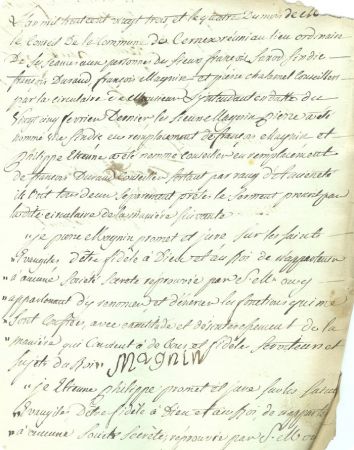 L'an mil huit cent vingt trois et le quatre du mois de
le Conseil de la Commune de Cernex réuni au lieu ordinaire
de ses séances aux personnes du Sieur françois Sindic
françois Duraud françois Magnin et pierre chatenel Conseillers
par la circulaire de Monsieur l'Intendant en datte du
vingt cinq fevrier dernier le sieur Magnin pierre a eté
nommé Sindic en remplacement de françois Magnin et
philippe Etienne a eté nommé Conseiller en remplacement
de francois Duraud Conseiller sortant par rang d'ancieneté
ils ont tous deux séparement prété le serment prescrit par
la dite circulaire de la maniere suivante
"je pierre Magnin promet et jure sur les saints
" Evangiles d'etre fidèle à Dieu et au Roi de n'appartenir
" à aucune societé secrete reprouvée par S. M. ou y
appartenant d'y renoncer et d'exercer les fonctions qui me
sont confiées avec exactitude et de la
maniere qui convient à de bons et fidèles serviteurs et
sujets du Roi Magnin
"je Etienne philippe promet et jure sur les saints
" Evangiles d'être fidèle à Dieu et au Roi de n'apparte
" à aucune societé secrete, reprouvée par S. M. ou